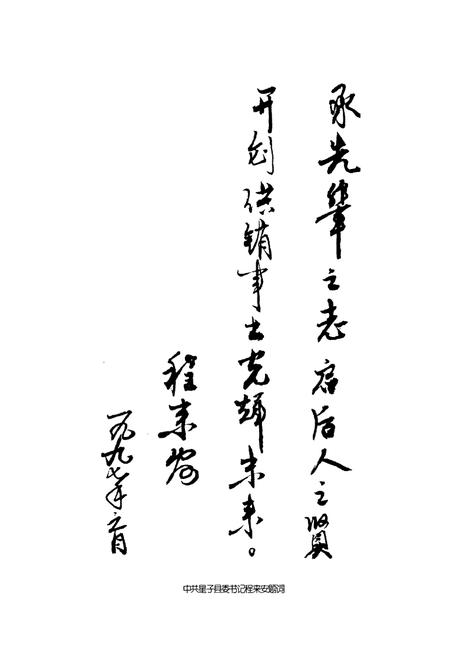 承先辈之志启后人之贤
开创供销事业光辉未来。
程来安
一九九七年月
中共星子县委书记程来安题词